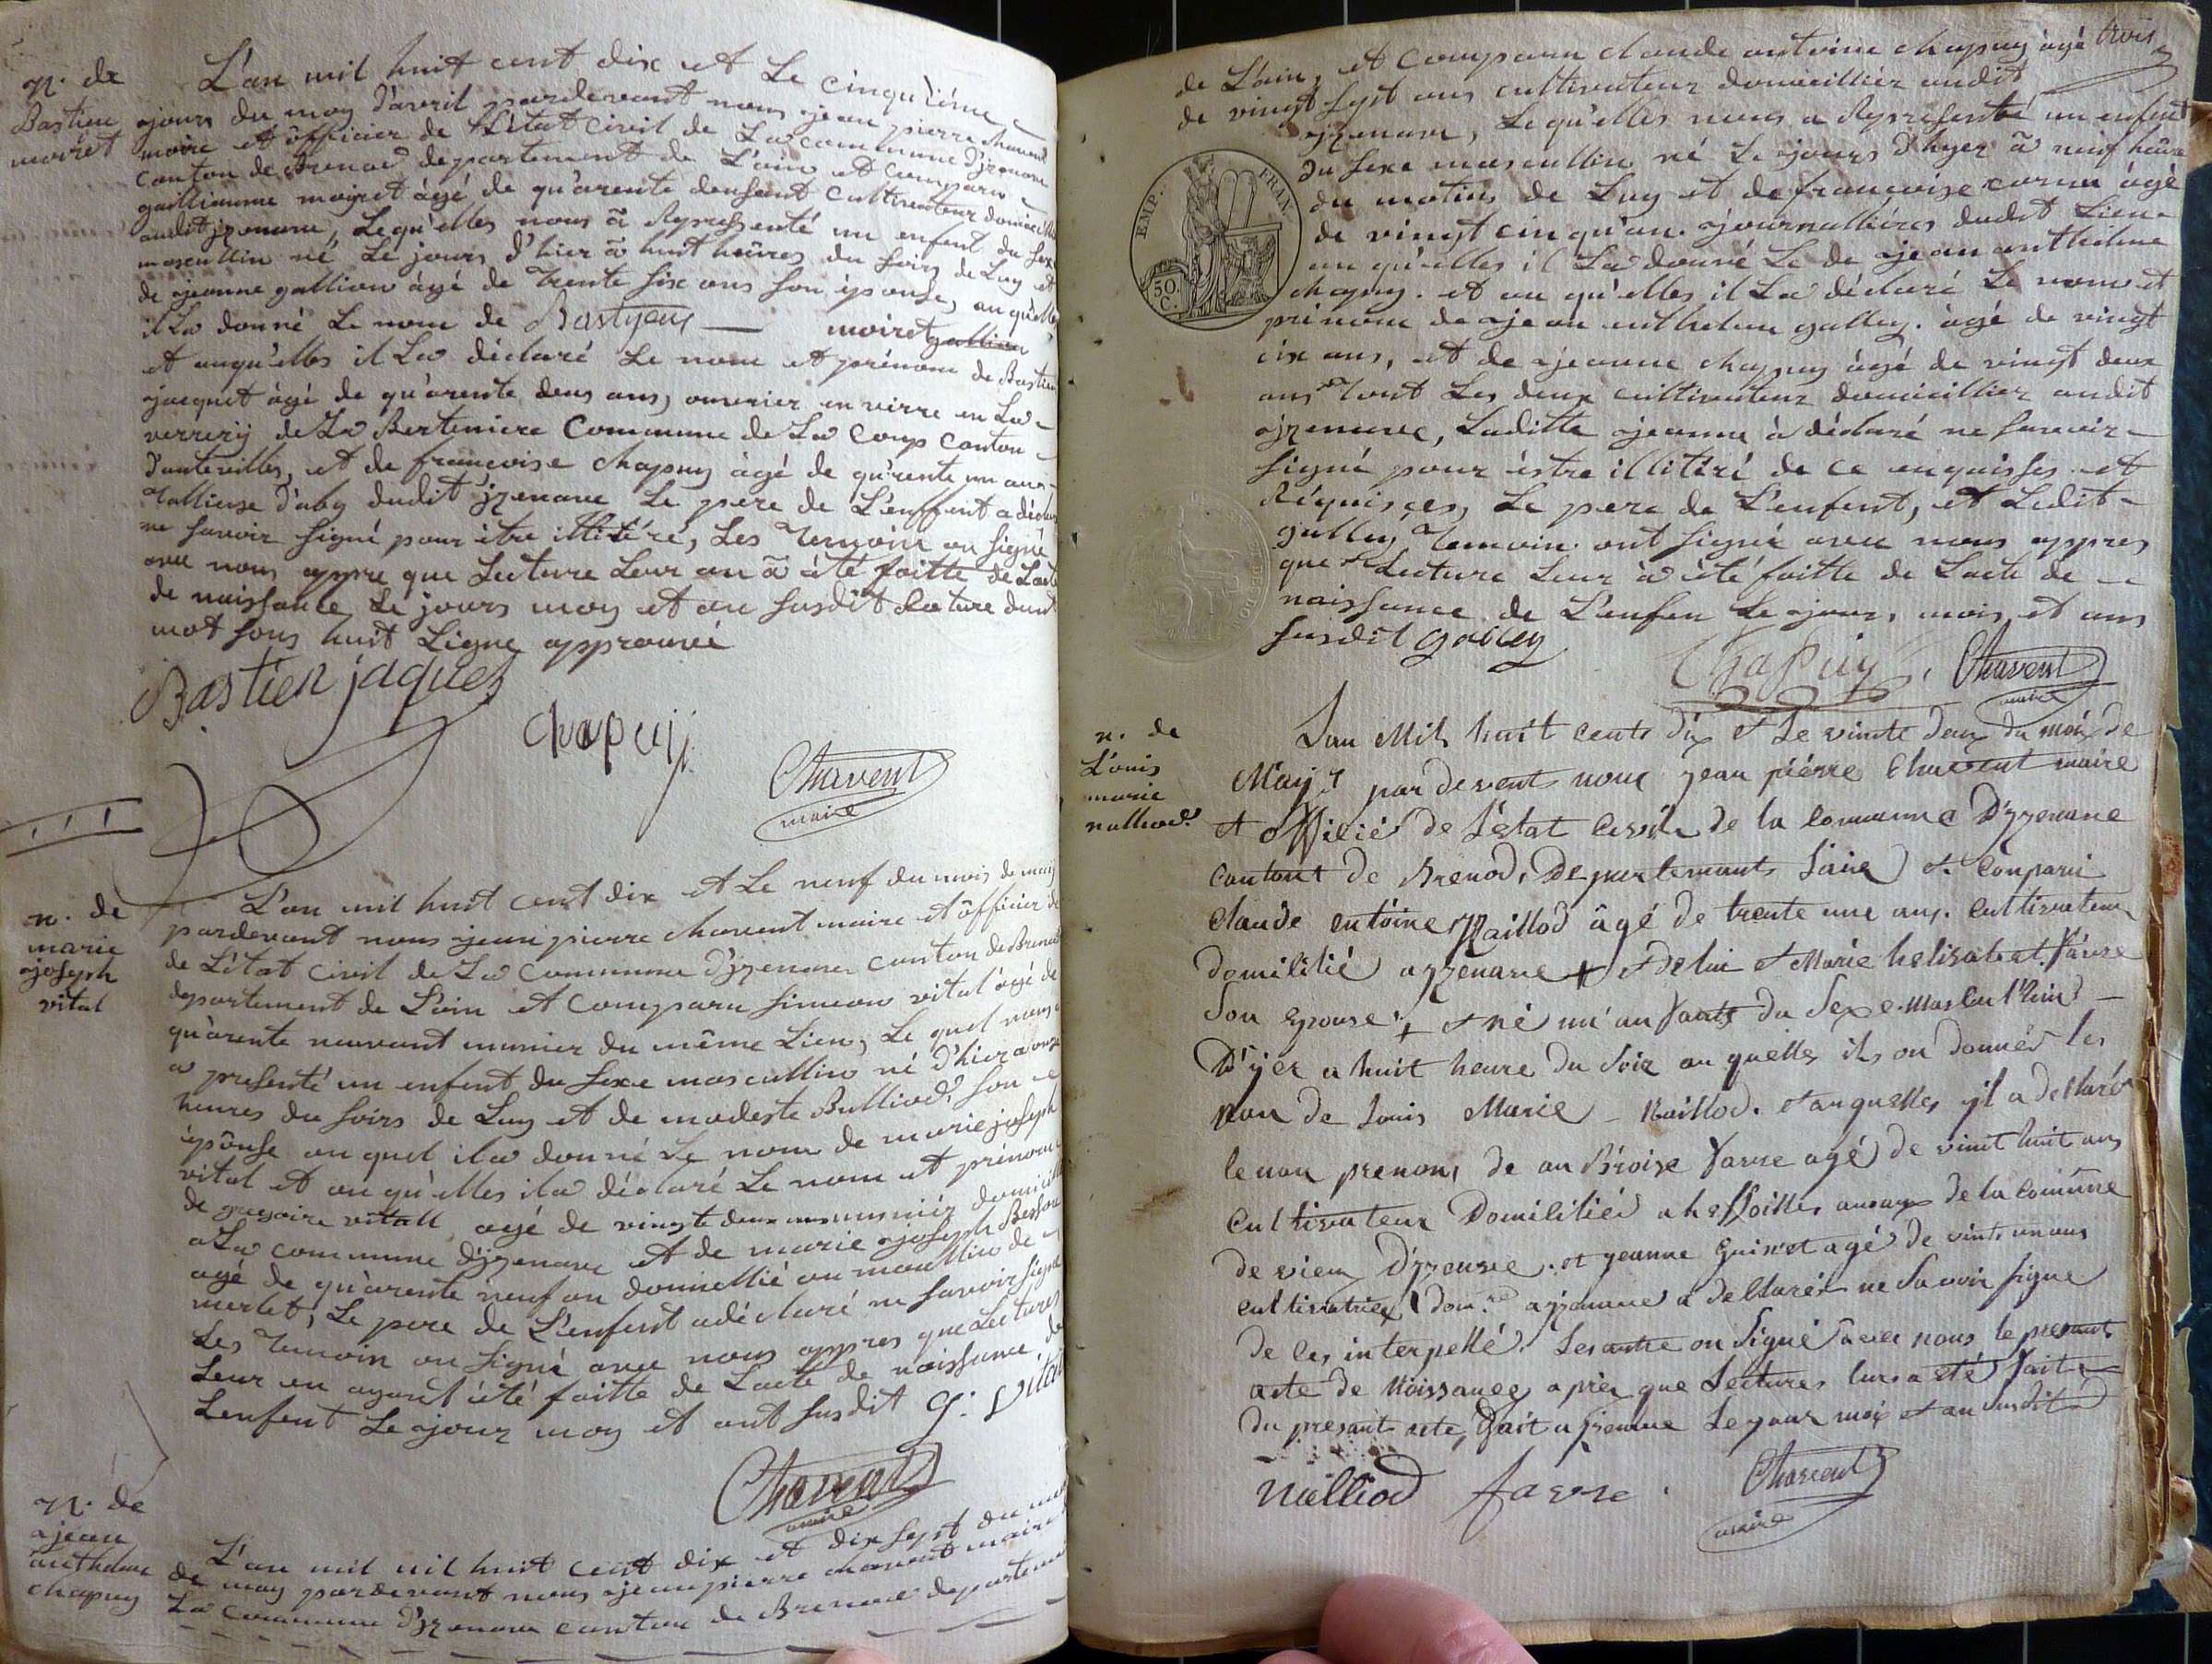 n. de
Bastien
moiret
L'an mil huit cent dix et Le cinquième
ajours du moy d'avril pardevant nous ajean pierre chavent
maire et officier de L'état civil de La commune d'jzenave
canton de Brenod departement de L'ain et comparu
guilliaume moiret âgé de qu'arente deusant cultivateur domicillié
audit jzenave, Lequ'elles nous ã Représsenté un enfent du sex
mascullin né Le jours d'hier ã huit heûres du soirs de Luy et
de ajeanne gallion âgé de trente six ans son épouse, auqu'elles
il La donné Le nom de Bastyens — moiret gallion
et auqu'elles il La déclaré Le nom et prénom de Bastien
ajacquet âgé de qu'arente deus ans, ouverier en virre en La
verrerij de La Berteniere Commune de La Coup Canton
d'antevilles, et de francoise chapuy âgé de qu'rente un ans
Tallieuse d'aby dudit jzenave Le pere de L'enffent a déclaré
ne savoir signé pour être illitéré, Les Temoin on signé
avec nous appre que Lecture Leur an ã été faitte de L'acte
de naissance Le jours moy et an susdit Rature dun
mot sous huit Ligne approuvé
Bastien jaquet
Chapuij
Chavent
maire
n. de
marie
ajoseph
vital
L'an mil huit cent dix et Le neuf du mois de maij
pardevant nous ajean pierre chavent maire et officier de
de L'état civil de La commune d'jzenave canton de Brenod
departement de L'ain et comparu simeon vital âgé de
qu'arente neuvant munier du même Lieu, Le quel nous
a présenté un enfent du sexe mascullin né d'hier a onze
heures du soirs de Luy et de modeste Bulliod, son
épouse au quel il a donné Le nom de marie joseph
vital et au qu'elles il a déclaré Le nom et prénom
de gregoire vitall agé de vingte deux ans munier domicillié
a La commune d'jzenave et de marie ajoseph Besson
agé de qu'arente neuf an domicillié au moullin de
merlet, Le pere de L'enfent a déclaré ne savoir signé
Les Temoin on signé avec nous appres que Lectures
Leur en ayant été faitte de L'acte de naissance de
L'enfent Le ajour moy et ant susdit G. vital
Chavent
maire
n. de
ajean
anthelme
chapuy
L'an mil mil huit cent dix et dix sept du
de may pardevant nous ajean pierre chavent maire
La commune d'jzenave canton de Brenod departement
trois
de L'ain, et comparu claude antoine chapuy âgé
de vingt sept ans cultivateur domicillier audit
ajzenave, Lequ'elles nous a Représenté un enfent
du sexe mascullin né Le ajours d'hyer ã neuf heûre
du matins de Luy et de francoise cornu âgé
de vingt cinqu'an. ajournalliéres dudit Lieu
au qu'elles il La donné Le de ajean anthelme
chapuy. et au qu'elles il La déclaré Le nom et
prénom de ajean anthelme galley. âgé de vingt
six ans, et de ajeanne chapuy âgé de vingt deux
ans tout Les deux cultivateur domicillier audit
ajzenave, Laditte ajeanne à déclaré ne savoir
signé pour éstre illitéré de ce enquisses et
Réquisces, Le pere de L'enfent, et Ledit
galley Temoin ont signé avec nous appres
que Lecture Leur à été faitte de L'acte de
naissance de L'enfen Le ajour, mois et ans
susdit galley
Chapuy Chavent
maire
EMP. FRAN.
50.
C.
n. de
Louis
marie
nalliod
Lan Mil huit cents dix et Le vinte deux du mois de
May pardevent nous jean piérre Chavent maire
et offisié de L'état civile de la commune D'jzenave
Cantont de Brenod, Departemant L'ain et Comparu
Claude entoine Naillod âgé de trente une ans. Cultivateur
domilitié ajzenave et de lui et Marie helisabet favre
son epouse, et né un'anfants du sexe. Mascullin
D'yer a huit heure du soir au quelles ils on donnér les
non de louis Marie Naillod. et auquelles jl a dellaré
le non prenon, de anBroise favre agé de vint huit ans
Cultivateur Domilitiér a hessoilles de la comune
de vieu D'jzenave. et jeanne Guinet agé de vinte un ans
cultivatrix dom.re ajzenave a dellarér ne savoir signe
de ces interpellé. Les autre on signé avec nous le presant
acte de Noissances aprés que Lectures lurs a eté faite
du presant acte, fait a jzenave Le jour moi et an susdit
nalliod favre Chavent
maire